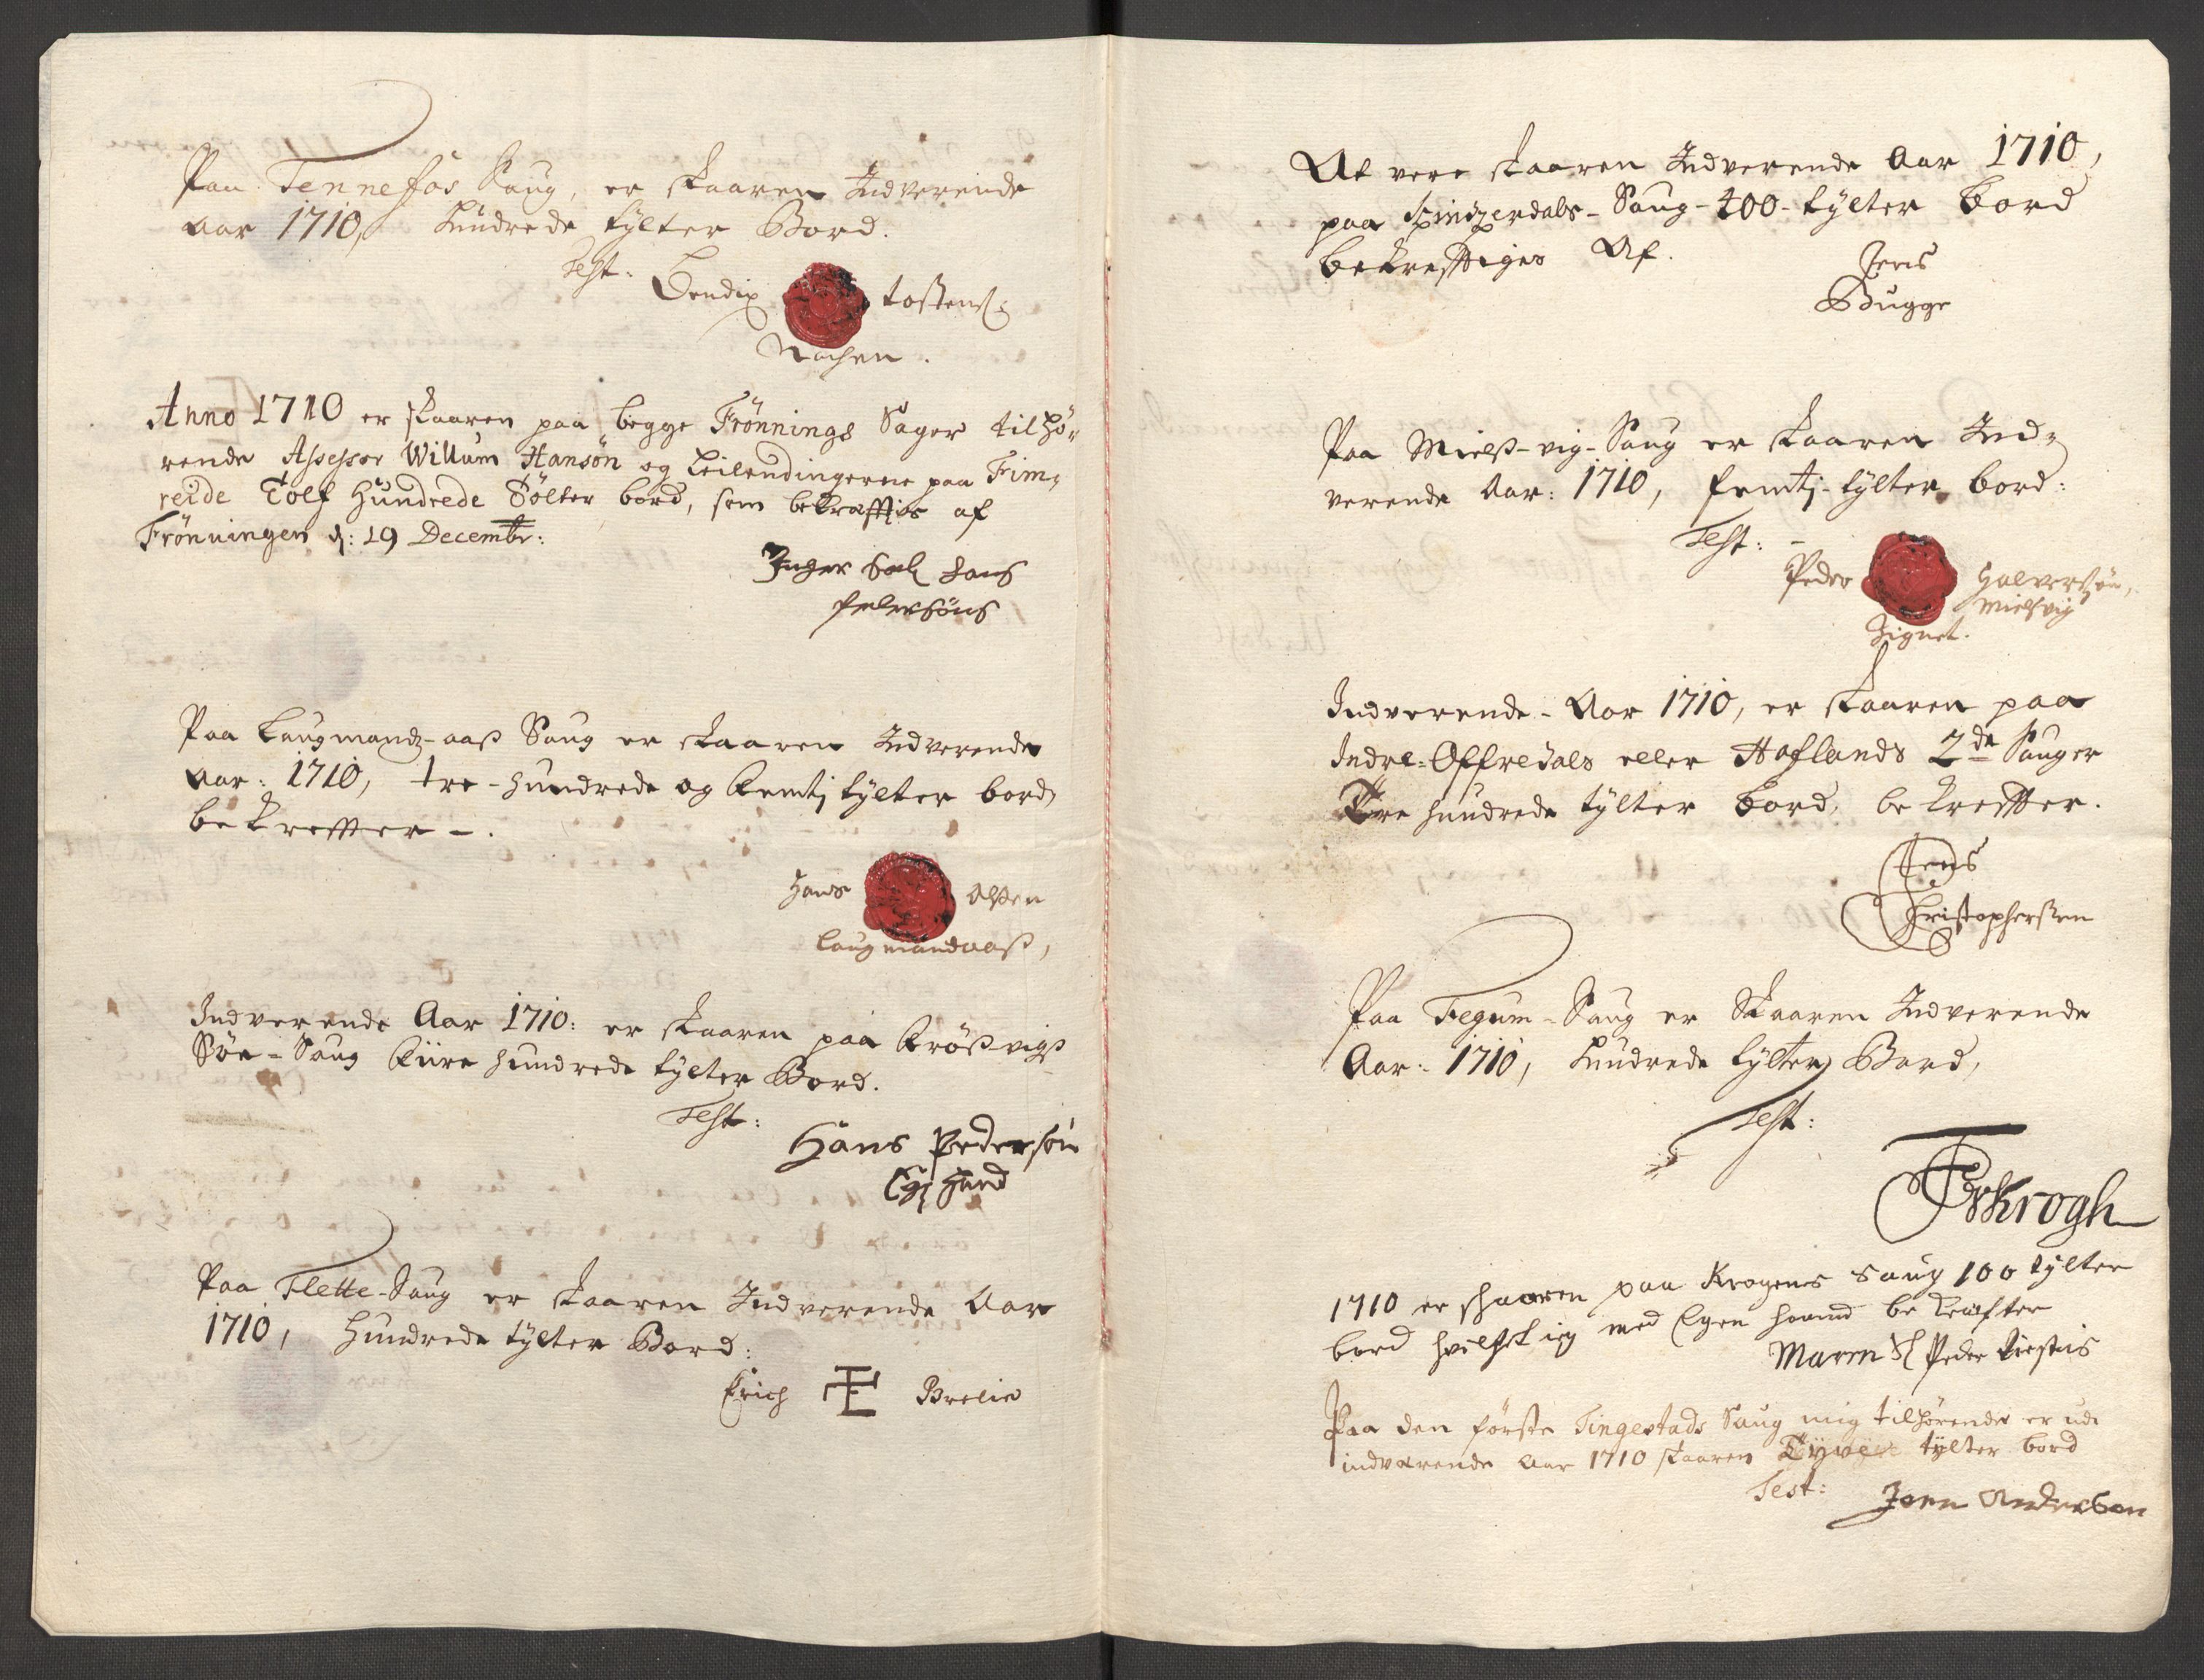 Paa Tennefos Saug, er skaaren Indverende
Aar 1710, Hundrede tylter Bord.
Test: Bendix tostens:
Nachen.
Anno 1710 er skaaren paa begge Frönnings Sager tilhø,,
rende Assessor Willum Hansön og Leilendingerne paa Fim,,
reide Tolf Hundrede Tölter bord, som bekræfftis af
Frönningen d: 19 Decembr:
Inger Sal Hans
Pedersöns
Paa Laugmands-aaß Saug er skaaren Indverende
Aar: 1710, tre-hundrede og femti tylter bord,
bekreffter -.
Hans Olsen
Laugmandaaß,
Indverende Aar 1710: er skaaren paa Krößvigs
Söe-Saug fiire hundrede tylter Bord.
Test:
Hans Pedersön
Egh Hand
Paa Flette-Saug er skaaren Indverende Aar
1710, Hundrede tylter Bord:
Erich Brelie
At vere skaaren Indverende Aar 1710,
paa -Saug-400-tylter bord
bekrefftiges Af.
Jens
Bugge
Paa Mielß-vig-Saug er skaaren Ind,,
verende Aar: 1710, femti-tylter bord:
Test: -
Peder Halversøn,
Mielsvig
Zignet.
Indverende-Aar 1710, er skaaren paa
Indre-Offredals eller Haflands 2de Sauger
Tre hundrede tylter bord, bekreffter.
Jens
Christophersen
Paa Fegum-Saug er Skaaren Indverende
Aar: 1710, Hundrede tylter Bord,
Test:
Krogh
1710 er skaaren paa Krogens Saug 100 tylter
bord hvilket ieg med Egen haand bekræfter
Maren Sl Peder
Paa den förste Tingestads Saug mig tilhörende er udi
indværende Aar 1710 skaaren Tyve tylter bord
Test: Joen Andersen